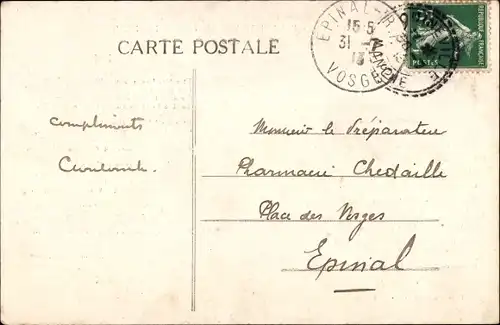 CARTE POSTALE
EPINAL
15-5
31
13
VOSGES
REPUBLIQUE FRANÇAISE
POSTES
compliments
Monsieur le Préparateur
Pharmacie Chedaille
Place des Vosges
Epinal